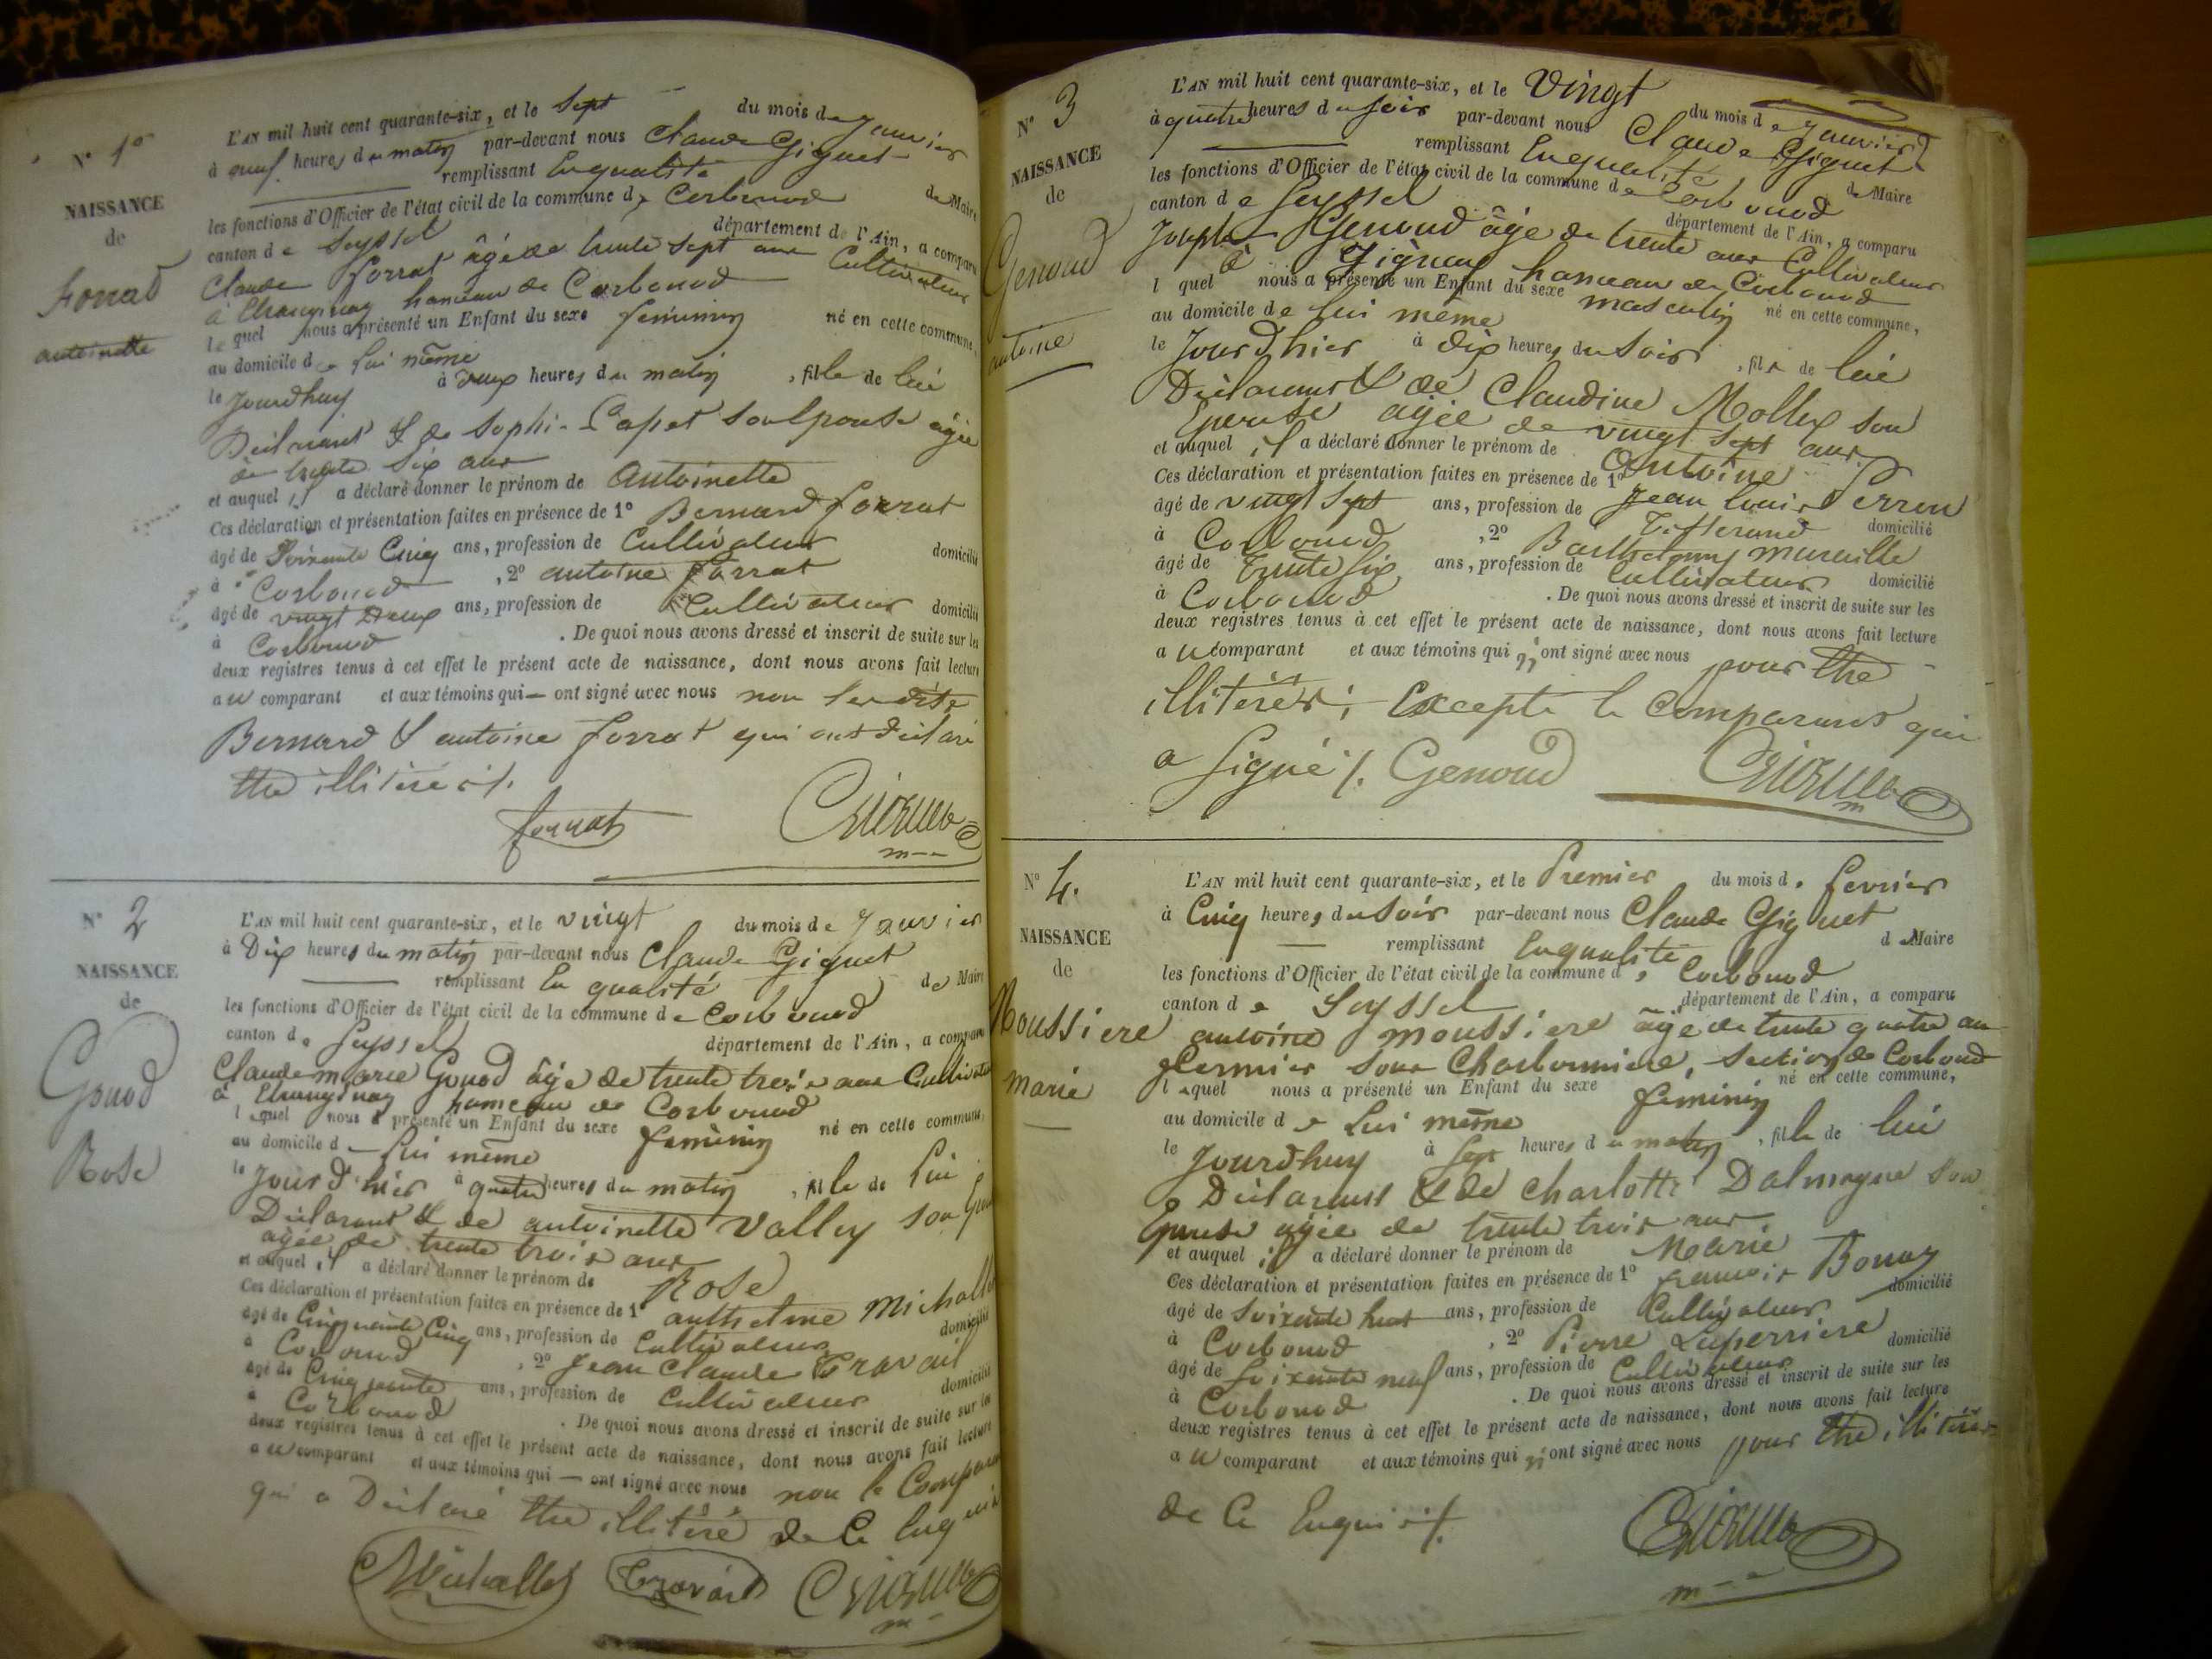 N° 1°
NAISSANCE
de
Forrat
antoinette
L'AN mil huit cent quarante-six, et le Sept du mois de Janvier
à neuf heures du matin par-devant nous Claude Giguet
remplissant En qualité de Maire
les fonctions d'Officier de l'état civil de la commune de Corbonod
canton de Seyssel département de l'Ain, a comparu
Claude forrat âgé de trente sept ans Cultivateur
à Etranginaz hameau de Corbonod
lequel nous a présenté un Enfant du sexe feminin né en cette commune,
au domicile de lui même
le Jourdhuy à deux heures du matin, fille de lui
Déclarant & de Sophie Capet son Epouse âgée
de trente six ans
et auquel il a déclaré donner le prénom de Antoinette
Ces déclaration et présentation faites en présence de 1° Bernard forrat
âgé de Soixante Cinq ans, profession de Cultivateur domicilié
à Corbonod, 2° antoine forrat
âgé de vingt deux ans, profession de Cultivateur domicilié
à Corbonod. De quoi nous avons dressé et inscrit de suite sur les
deux registres tenus à cet effet le présent acte de naissance, dont nous avons fait lecture
au comparant et aux témoins qui — ont signé avec nous non les dits
Bernard & antoine forrat qui ont déclaré
être illitéré ./.
forrat Giguet
m
N° 2
NAISSANCE
de
Gonod
Rose
L'AN mil huit cent quarante-six, et le vingt du mois de Janvier
à Dix heures du matin par-devant nous Claude Giguet
remplissant En qualité de Maire
les fonctions d'Officier de l'état civil de la commune de Corbonod
canton de Seyssel département de l'Ain, a comparu
Claude marie Gonod âgé de trente trois ans Cultivateur
à Etranginaz hameau de Corbonod
lequel nous a présenté un Enfant du sexe feminin né en cette commune,
au domicile de lui même
le Jourd'hier à quatre heures du matin, fille de lui
Déclarant & de antoinette Vallet son
agée de trente trois ans
et auquel il a déclaré donner le prénom de Rose
Ces déclaration et présentation faites en présence de 1° anthelme Michallet
âgé de Cinquante Cinq ans, profession de Cultivateur domicilié
à Corbonod, 2° Jean Claude Travail
âgé de Cinquante ans, profession de Cultivateur domicilié
à Corbonod. De quoi nous avons dressé et inscrit de suite sur les
deux registres tenus à cet effet le présent acte de naissance, dont nous avons fait lecture
au comparant et aux témoins qui — ont signé avec nous non le Comparant
qui a Déclaré être illitéré de ce Enquis
Michallet Travail Giguet
m
N° 3
NAISSANCE
de
Genoud
antoine
L'AN mil huit cent quarante-six, et le Vingt du mois de Janvier
à quatre heures du soir par-devant nous Claude Giguet
remplissant En qualité de Maire
les fonctions d'Officier de l'état civil de la commune de Corbonod
canton de Seyssel département de l'Ain, a comparu
Joseph Genoud âgé de trente ans Cultivateur
à Gignez hameau de Corbonod
lequel nous a présenté un Enfant du sexe masculin né en cette commune,
au domicile de lui même
le Jourd'hier à dix heures du soir, fils de lui
Déclarant & de Claudine Mollex son
Epouse agée de vingt sept ans
et auquel il a déclaré donner le prénom de Antoine
Ces déclaration et présentation faites en présence de 1° Jean louis Perren
âgé de vingt sept ans, profession de Tisserand domicilié
à Corbonod, 2° Barthelemy muraille
âgé de Trente six ans, profession de Cultivateur domicilié
à Corbonod. De quoi nous avons dressé et inscrit de suite sur les
deux registres tenus à cet effet le présent acte de naissance, dont nous avons fait lecture
au comparant et aux témoins qui n'ont signé avec nous pour être
illitérés; Excepté le comparant qui
a signé ./. Genoud Giguet
m
N° 4.
NAISSANCE
de
Moussiere
marie
L'AN mil huit cent quarante-six, et le Premier du mois de fevrier
à Cinq heures du soir par-devant nous Claude Giguet
remplissant En qualité de Maire
les fonctions d'Officier de l'état civil de la commune de Corbonod
canton de Seyssel département de l'Ain, a comparu
antoine moussiere âgé de trente quatre ans
fermier sous Charbonniere, Section de Corbonod
lequel nous a présenté un Enfant du sexe feminin né en cette commune,
au domicile de lui même
le Jourdhuy à sept heures du matin, fille de lui
Déclarant & de Charlotte Dalmagne son
Epouse agée de trente trois ans
et auquel il a déclaré donner le prénom de Marie
Ces déclaration et présentation faites en présence de 1° francois Bonaz
âgé de soixante huit ans, profession de Cultivateur domicilié
à Corbonod, 2° Pierre Laperriere
âgé de soixante neuf ans, profession de Cultivateur domicilié
à Corbonod. De quoi nous avons dressé et inscrit de suite sur les
deux registres tenus à cet effet le présent acte de naissance, dont nous avons fait lecture
au comparant et aux témoins qui n'ont signé avec nous pour être illitérés
de ce Enquis ./.
Giguet
m